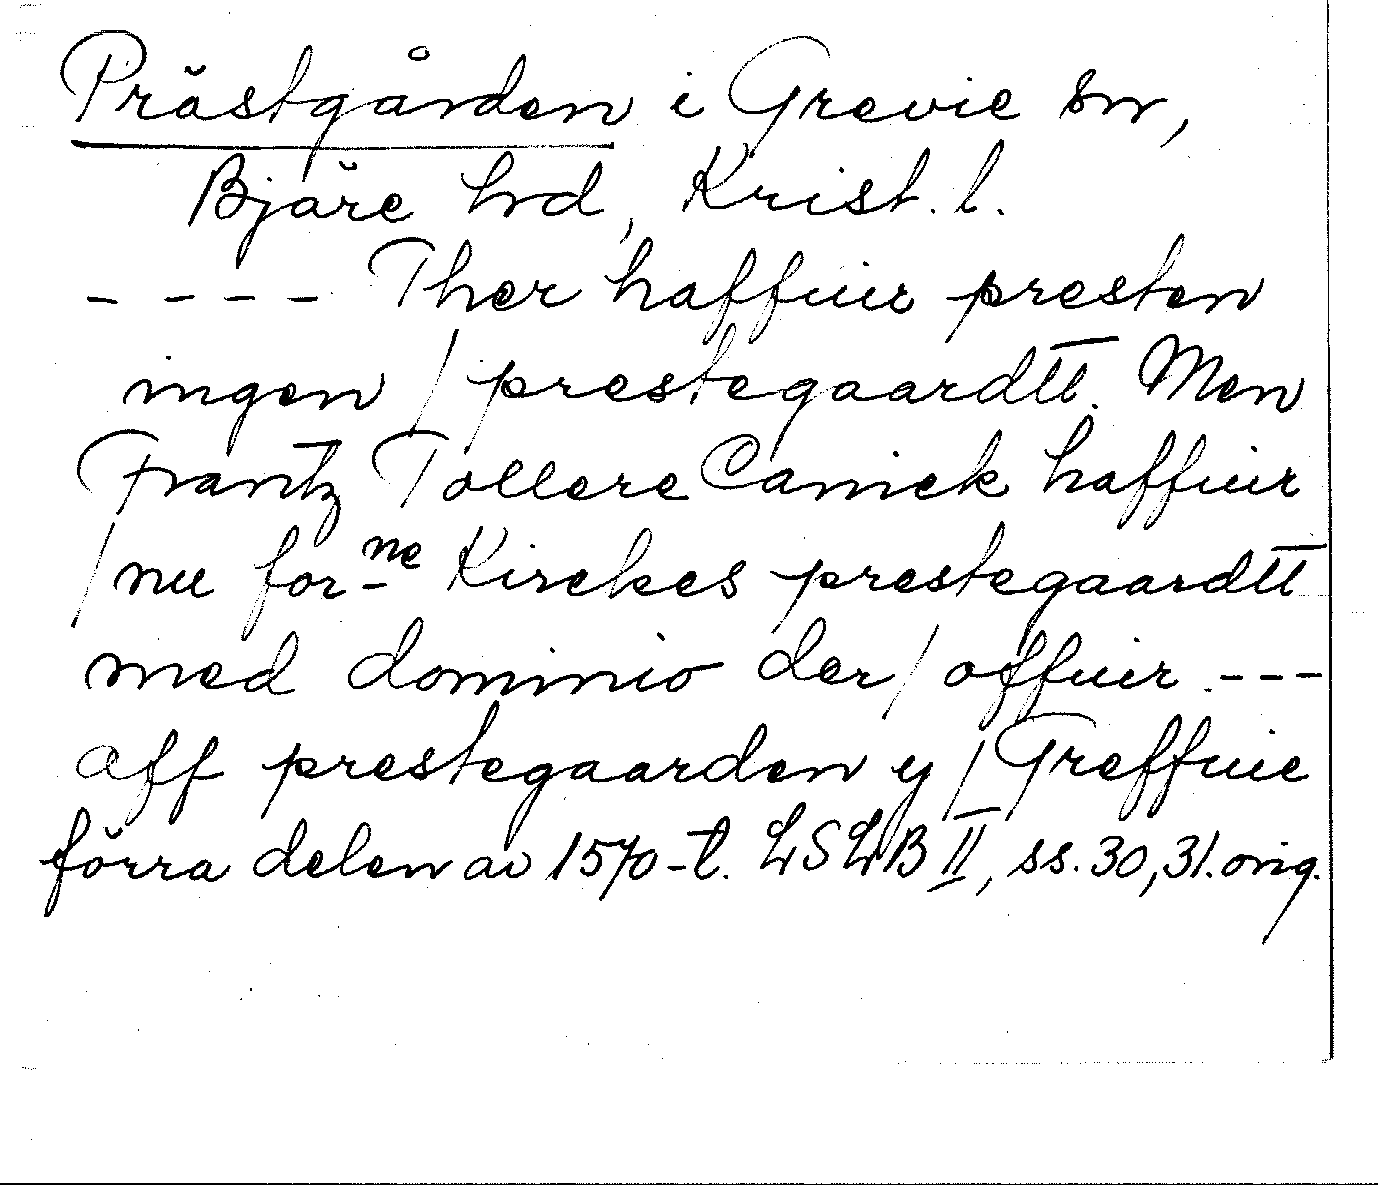 Prästgården i Grevie sn,
Bjäre hd, Krist. l.
---- Ther haffuer presten
ingen / prestegaardtt. Men
Frantz Tollere Canick haffuer
/ nu for-ne Kirckes prestegaardtt
med dominio der / offuer ---
aff prestegaarden y / Greffuie
förra delen av 1570-t. LSLB II, ss. 30,31. orig.